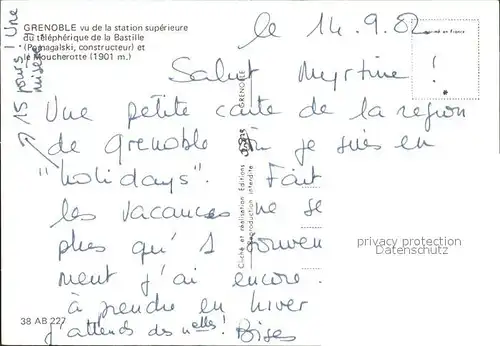 GRENOBLE vu de la station supérieure
du téléphérique de la Bastille
(Pomagalski, constructeur) et
le Moucherotte (1901 m.)
le 14.9.82
Salut Myrtine !
Une petite carte de la région
de Grenoble où je suis en
"holidays". Fait
les vacances ne se
plus qu' 1 souven
ment j'ai encore
à prendre en hiver
j'attends des nelles! Bises
15 jours ! Une
misère !
38 AB 227
GRENOBLE
Cliché et réalisation Editions
Reproduction interdite
privacy protection
Datenschutz